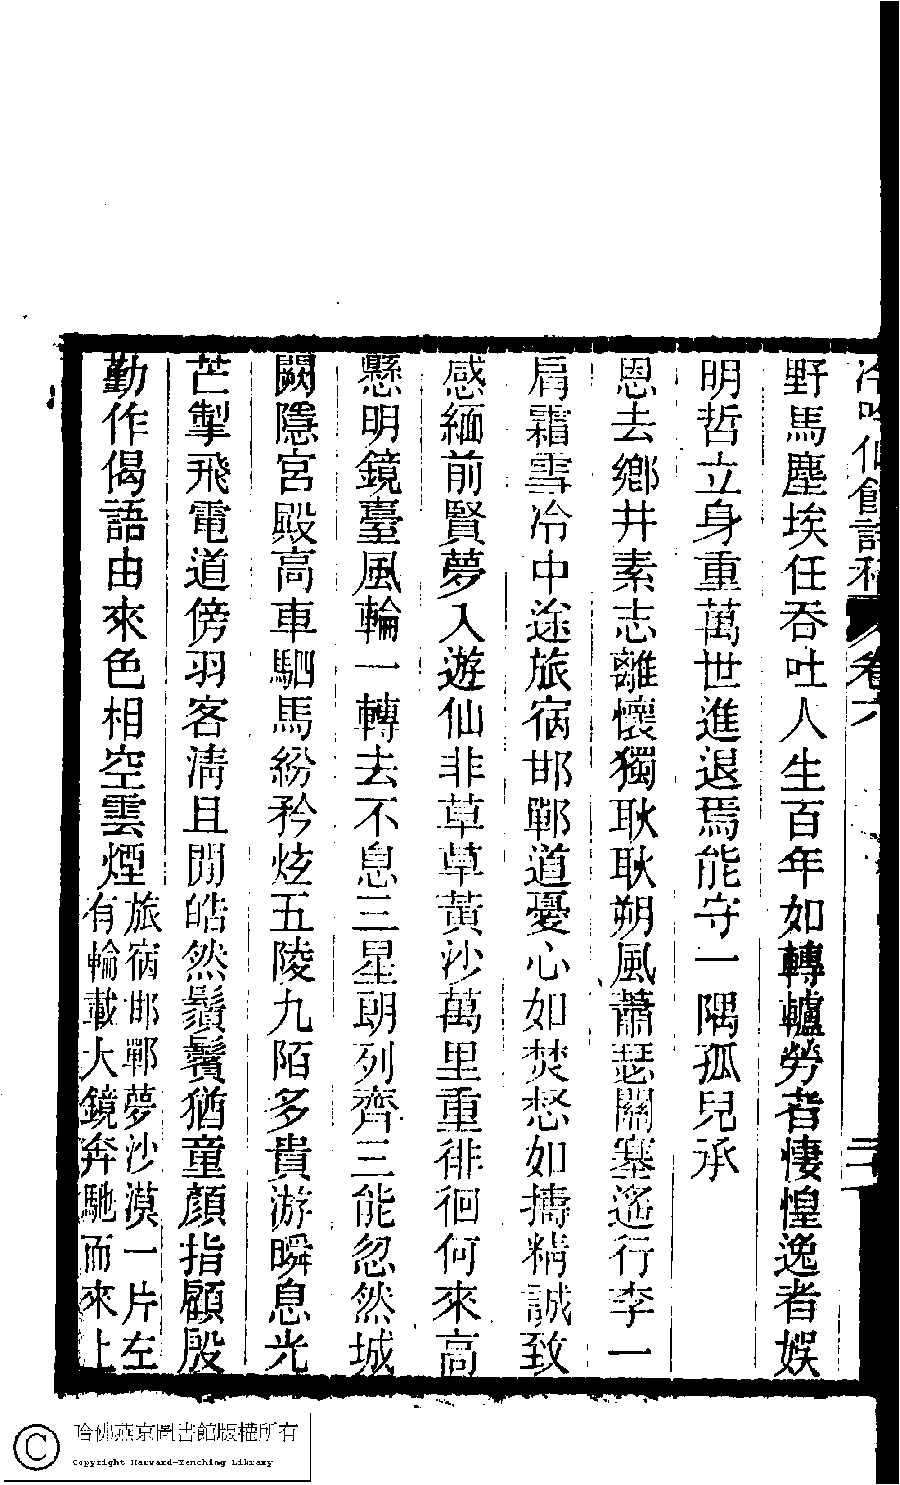 冷吟仙館詩稿 卷六 二
野馬塵埃任吞吐人生百年如轉轤勞者悽惶逸者娛
明哲立身重萬世進退焉能守一隅孤兒承
恩去鄉井素志離懷獨耿耿朔風蕭瑟關塞遙行李一
肩霜雪冷中途旅宿邯鄲道憂心如焚惄如擣精誠致
感緬前賢夢入遊仙非草草黃沙萬里重徘徊何來高
懸明鏡臺風輪一轉去不息三星朗列齊三能忽然城
闕隱宮殿高車駟馬紛矜炫五陵九陌多貴游瞬息光
芒掣飛電道傍羽客淸且閒皓然鬚鬢猶童顏指顧殷
勤作偈語由來色相空雲煙
旅宿邯鄲夢沙漠一片左
有輪載大鏡奔馳而來上
哈佛燕京圖書館版權所有
Copyright Harvard-Yenching Library